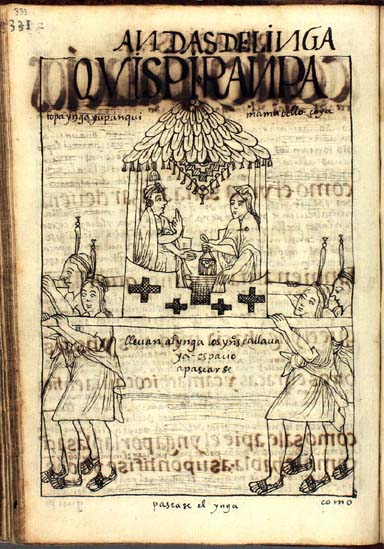 333
331
ANDAS DEL INGA
QVISPI RANPA
topa ynga yupanqui
mama ocllo coya
llevan al ynga los yns callaua
ya espacio
a pasearse
pasease el ynga
como